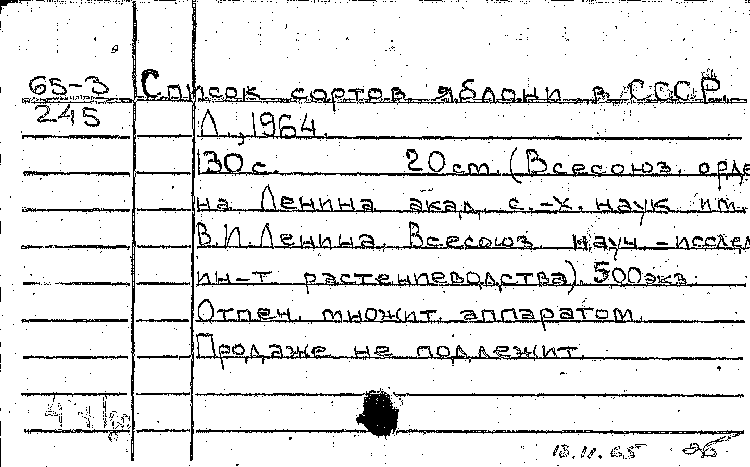 65-3 Список сортов яблони в СССР.
245 Л., 1964.
130 с. 20 см. (Всесоюз. орде
на Ленина акад. с.-х. наук им.
В.И.Ленина. Всесоюз. науч.-исслед.
ин-т. растениеводства). 500экз.
Отпеч. множит. аппаратом.
Продаже не подлежит.
18.11.65